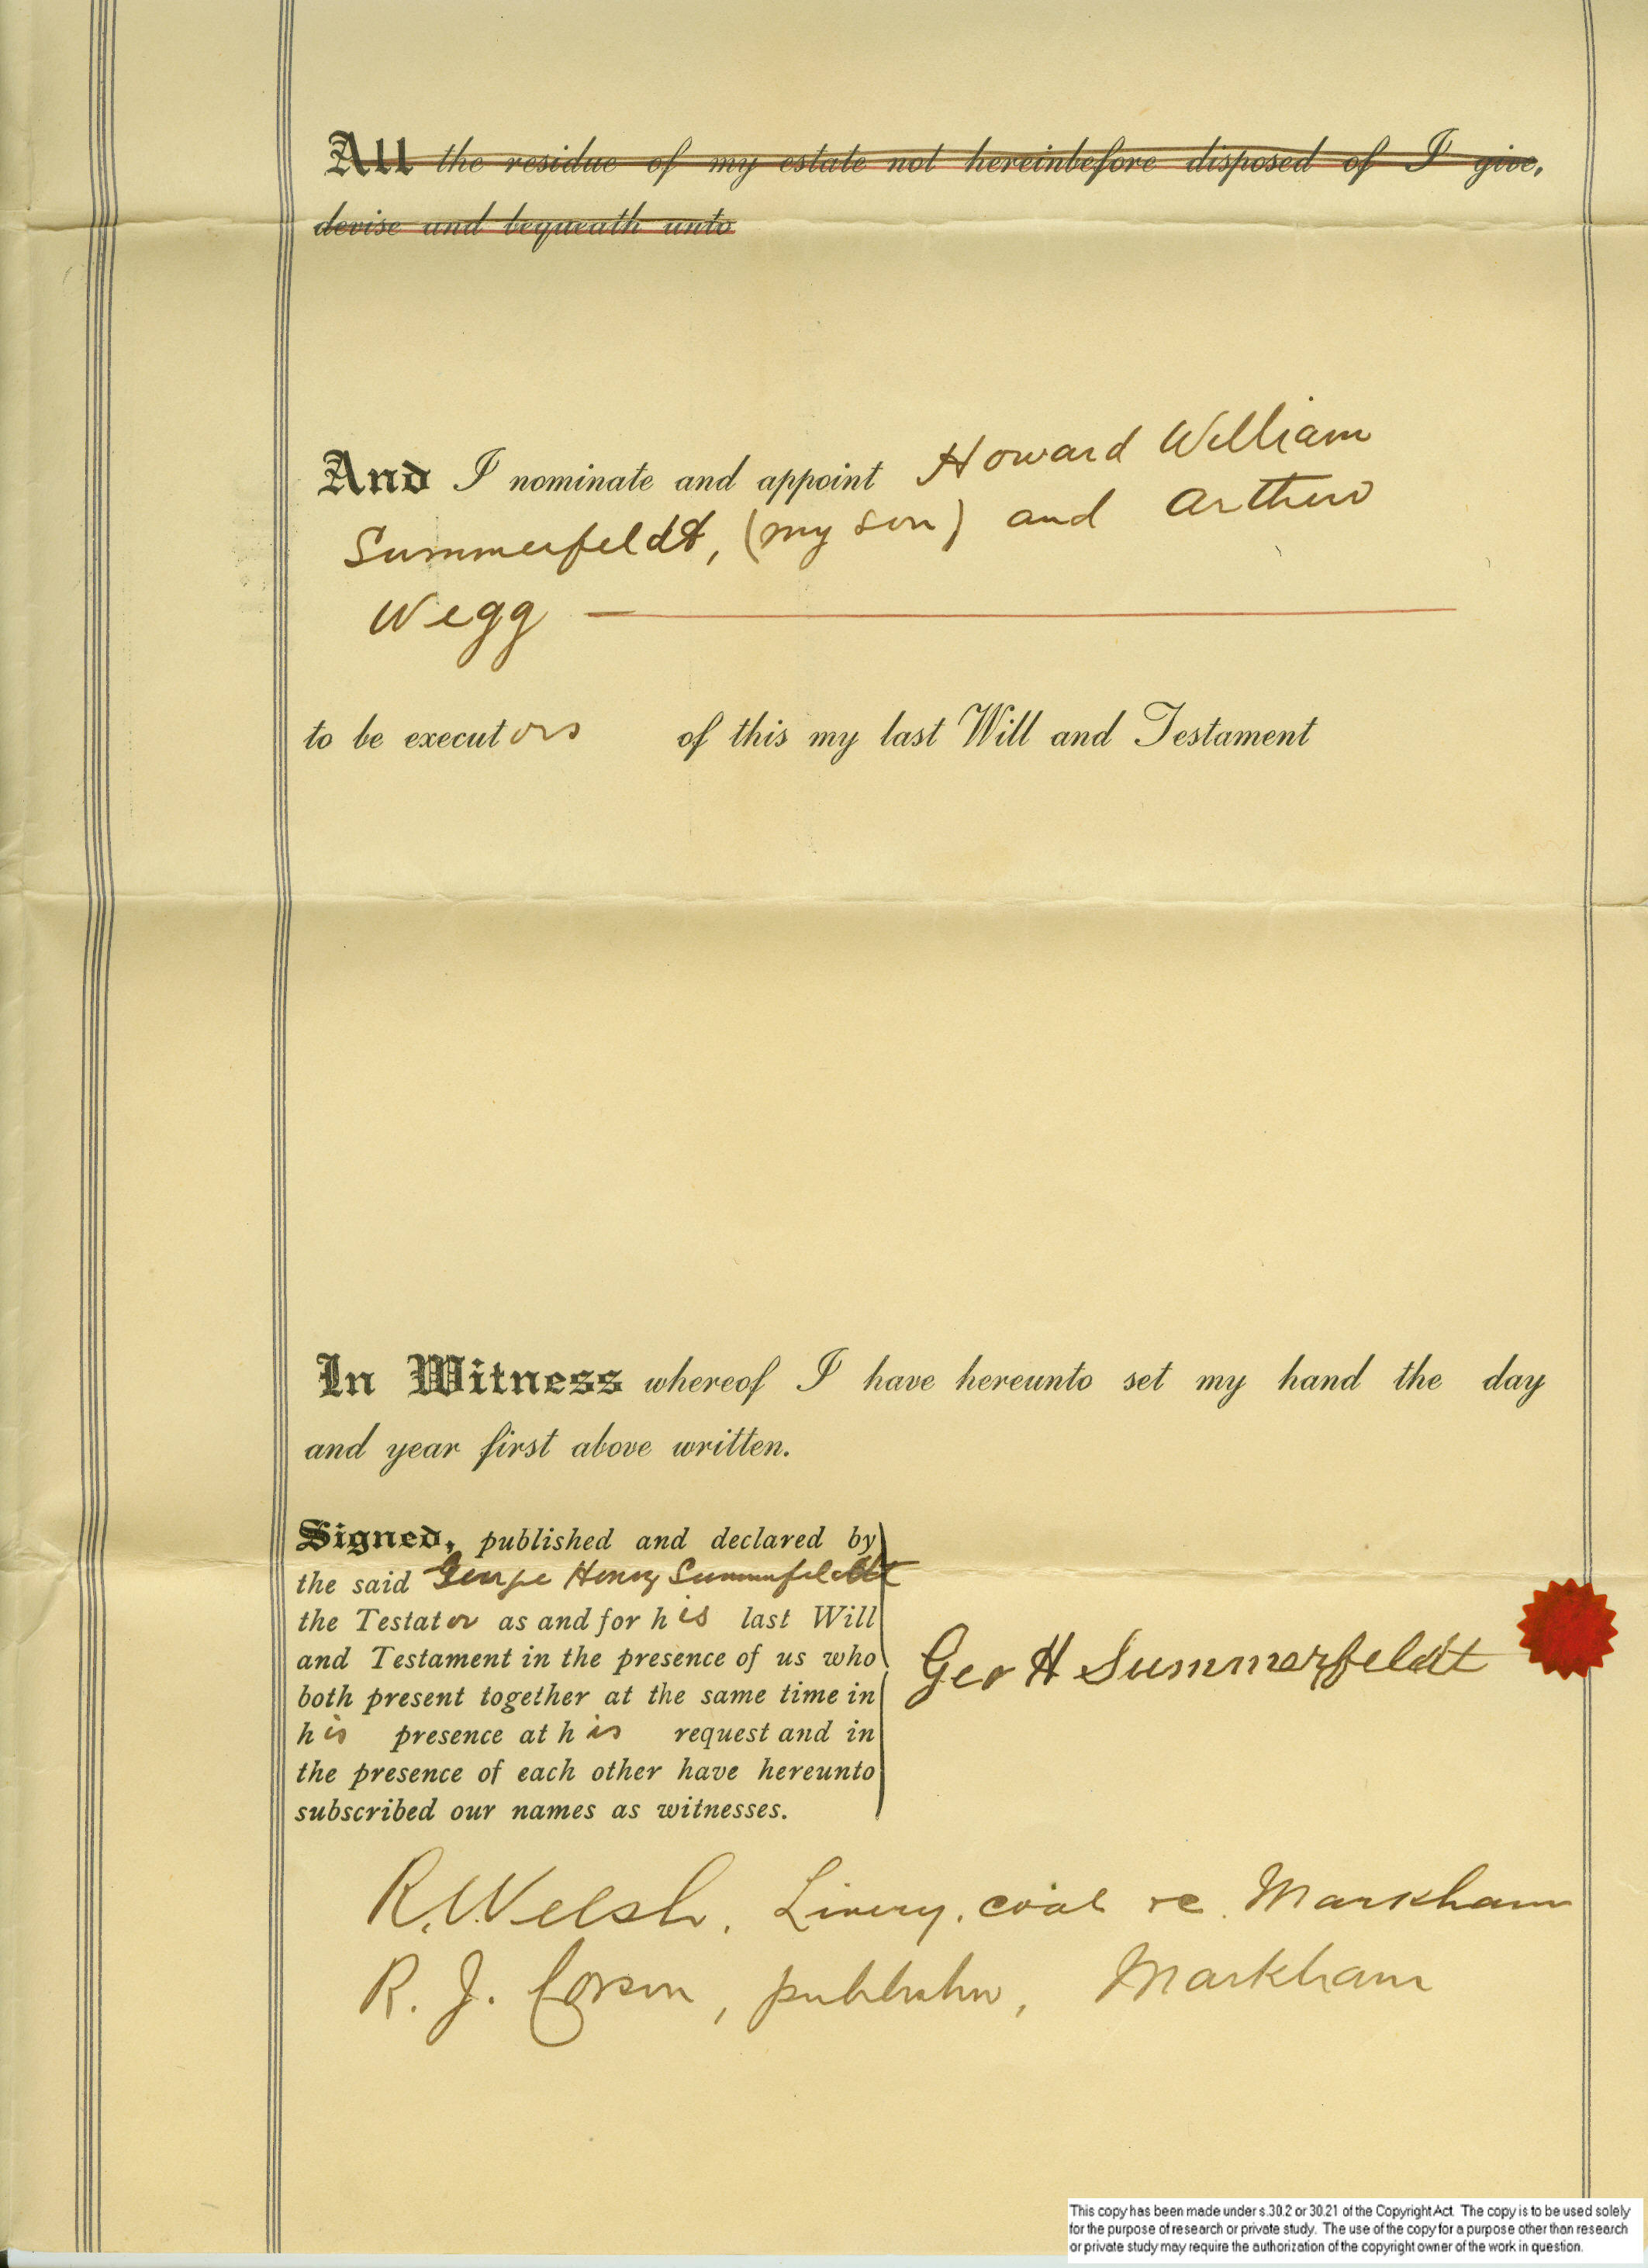 All the residue of my estate not hereinbefore disposed of I give,
devise and bequeath unto
And I nominate and appoint Howard William
Summerfeldt, (my son) and Arthur
Wegg
to be executors of this my last Will and Testament
In Witness whereof I have hereunto set my hand the day
and year first above written.
Signed, published and declared by
the said George Henry Summerfeldt
the Testator as and for his last Will
and Testament in the presence of us who
both present together at the same time in
his presence at his request and in
the presence of each other have hereunto
subscribed our names as witnesses.
Geo H Summerfeldt
R. Welsh, Livery, coal &c. Markham
R. J. Corson, publisher, Markham
This copy has been made under s.30.2 or 30.21 of the Copyright Act. The copy is to be used solely
for the purpose of research or private study. The use of the copy for a purpose other than research
or private study may require the authorization of the copyright owner of the work in question.